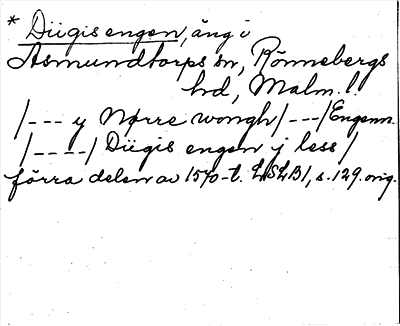 * Diigis engen, äng i
Asmundtorps sn, Rönnebergs
hd, Malm. l.
/--- y Nørre wongh/---/Engenn.
/----/ Diigis engen j less/
förra delen av 1570-t. LSLB1, s. 129. orig.